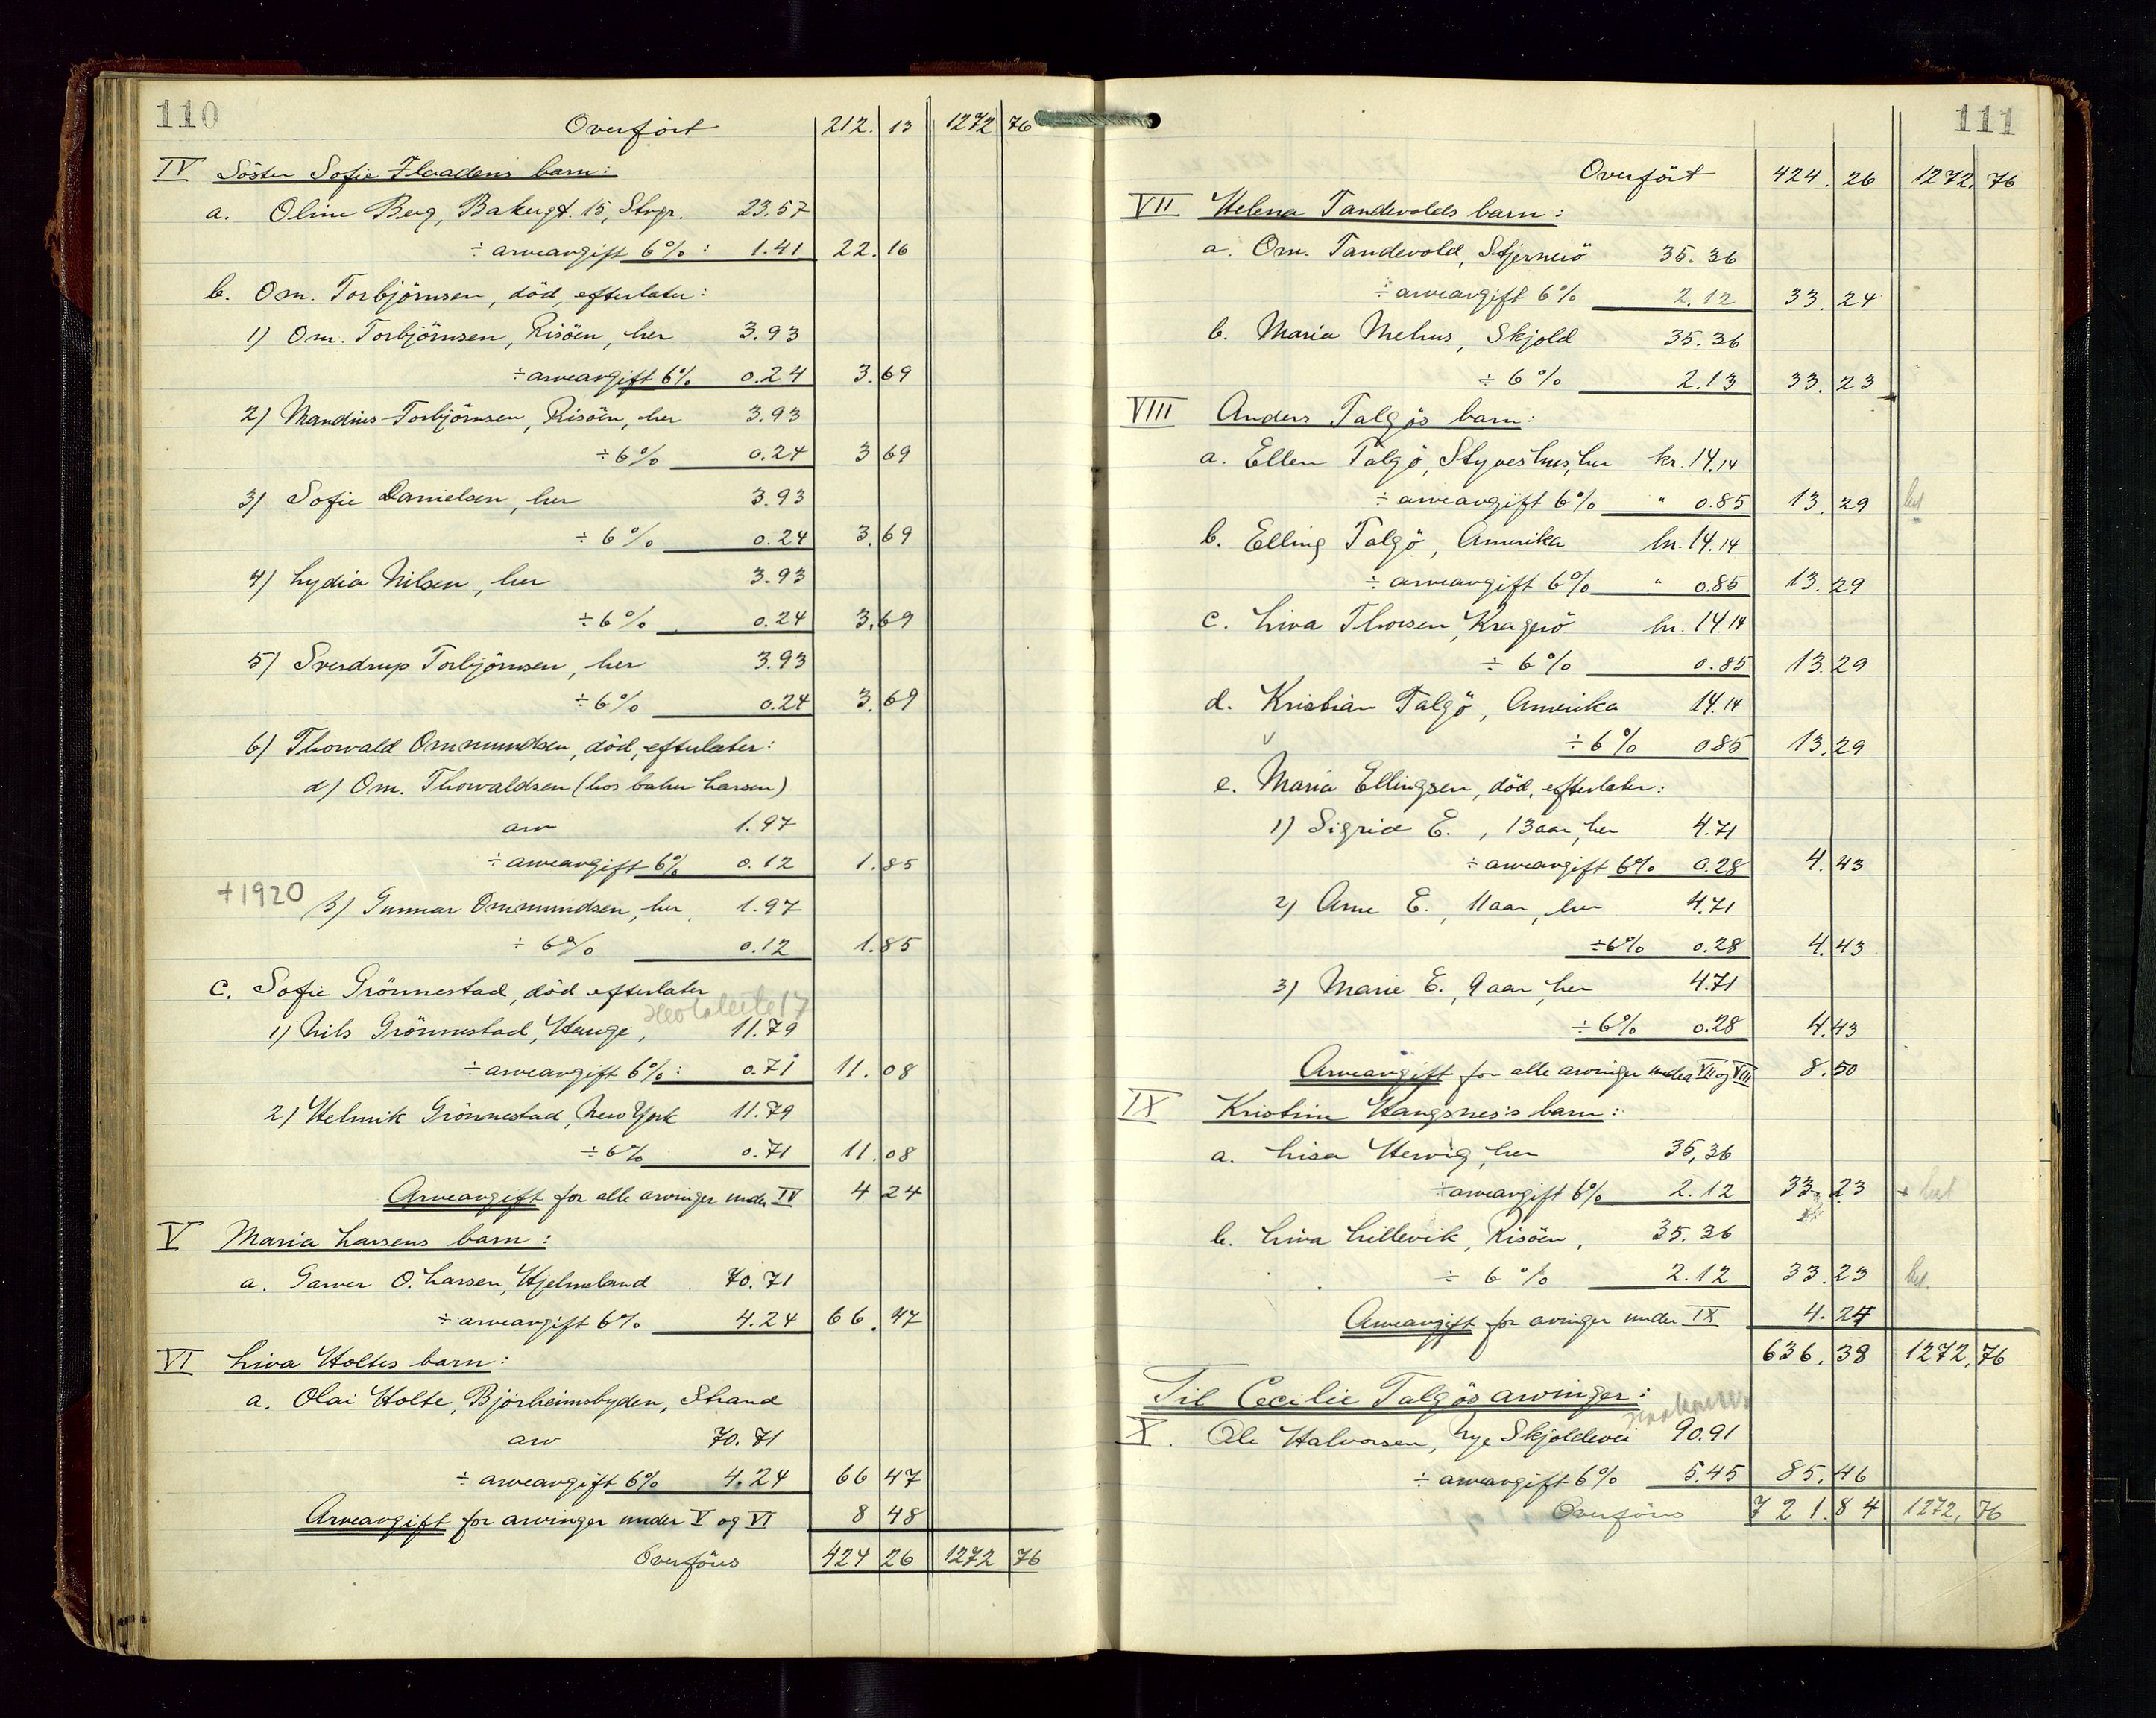 110
Overført 212. 13 1272 76
IV Söster Sofie Flaadens barn:
a. Oline Berg, Bakergt. 15, Stvgr. 23.57
÷ arveavgift 6%: 1.41 22.16
b. Om. Torbjörnsen, död, efterlater:
1) Om. Torbjörnsen, Risöen, her 3.93
÷ arveavgift 6% 0.24 3.69
2) Mandius Torbjörnsen, Risöen, her 3.93
÷ 6% 0.24 3 69
3) Sofie Danielsen, her 3.93
÷ 6% 0.24 3.69
4) Lydia Nilsen, her 3.93
÷ 6% 0.24 3.69
5) Sverdrup Torbjörnsen, her 3.93
÷ 6% 0.24 3.69
6) Thorvald Ommundsen, död, efterlater:
a) Om. Thorvaldsen (hos baker Larsen)
arv 1.97
÷ arveavgift 6% 0.12 1.85
+1920 b) Gunnar Ommundsen, her 1.97
÷ 6% 0.12 1.85
c. Sofie Grönnestad, död efterlater
1) Nils Grönnestad, Hauge, 11.79
÷ arveavgift 6%: 0.71 11.08
2) Helmik Grönnestad, New York 11.79
÷ 6% 0.71 11.08
Arveavgift for alle arvinger under IV 4 24
V Maria Larsens barn:
a. Garver O. Larsen, Hjelmeland 70.71
÷ arveavgift 6% 4.24 66.47
VI Liva Holtes barn:
a. Olai Holte, Björheimsbyden, Strand
arv 70.71
÷ arveavgift 6% 4.24 66 47
Arveavgift for arvinger under V og VI 8 48
Overföres 424 26 1272 76
111
Overfört 424. 26 1272. 76
VII Helena Tandevolds barn:
a. Om. Tandevold, Stjernerö 35.36
÷ arveavgift 6% 2.12 33.24
b. Maria Mehus, Skjold 35.36
÷ 6% 2.13 33.23
VIII Anders Talgös barn:
a. Ellen Talgö, Styveshus, her kr. 14.14
÷ arveavgift 6% " 0.85 13.29
b. Elling Talgö, Amerika kr. 14.14
÷ arveavgift 6% " 0.85 13.29
c. Liva Thorsen, Kragerö kr. 14.14
÷ 6% 0.85 13.29
d. Kristian Talgö, Amerika 14.14
÷ 6% 085 13.29
e. Maria Ellingsen, död, efterlater:
1) Sigrid E., 13 aar, her 4.71
÷ arveavgift 6% 0.28 4.43
2) Arne E., 11 aar, her 4.71
÷ 6% 0.28 4.43
3) Marie E., 9 aar, her 4.71
÷ 6% 0.28 4.43
Arveavgift for alle arvinger under VII og VIII 8.50
IX Kristine Haugsnes's barn:
a. Lisa Hervig, her 35,36
÷ arveavgift 6% 2.12 33.23
b. Liva Lillevik, Risöen, 35.36
÷ 6% 2.12 33.23
Arveavgift for arvinger under IX 4.24
636.38 1272.76
Til Cecilie Talgös arvinger:
X. Ole Halvorsen, Nye Skjoldevei 90.91
÷ arveavgift 6% 5.45 85.46
Overföres 721.84 1272.76